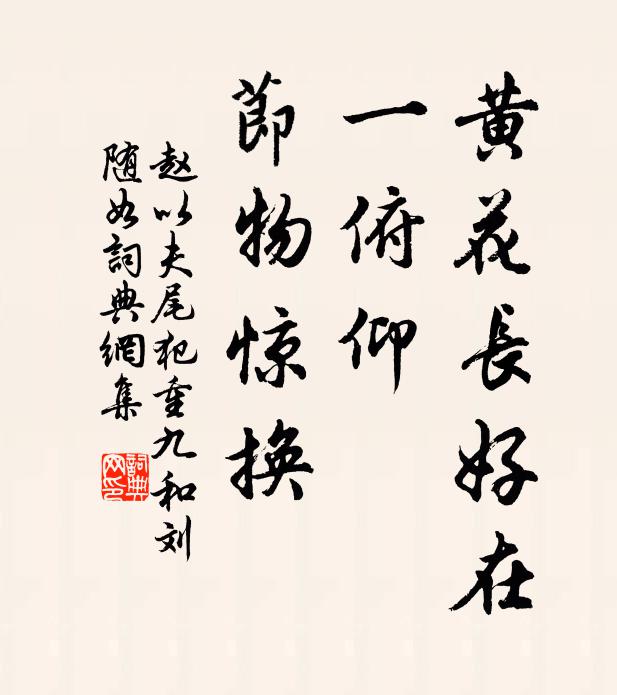 黄花長好在
一俯仰
節物惊換
赵以夫尾犯重九和刘
随如詞典網集
詞典网印